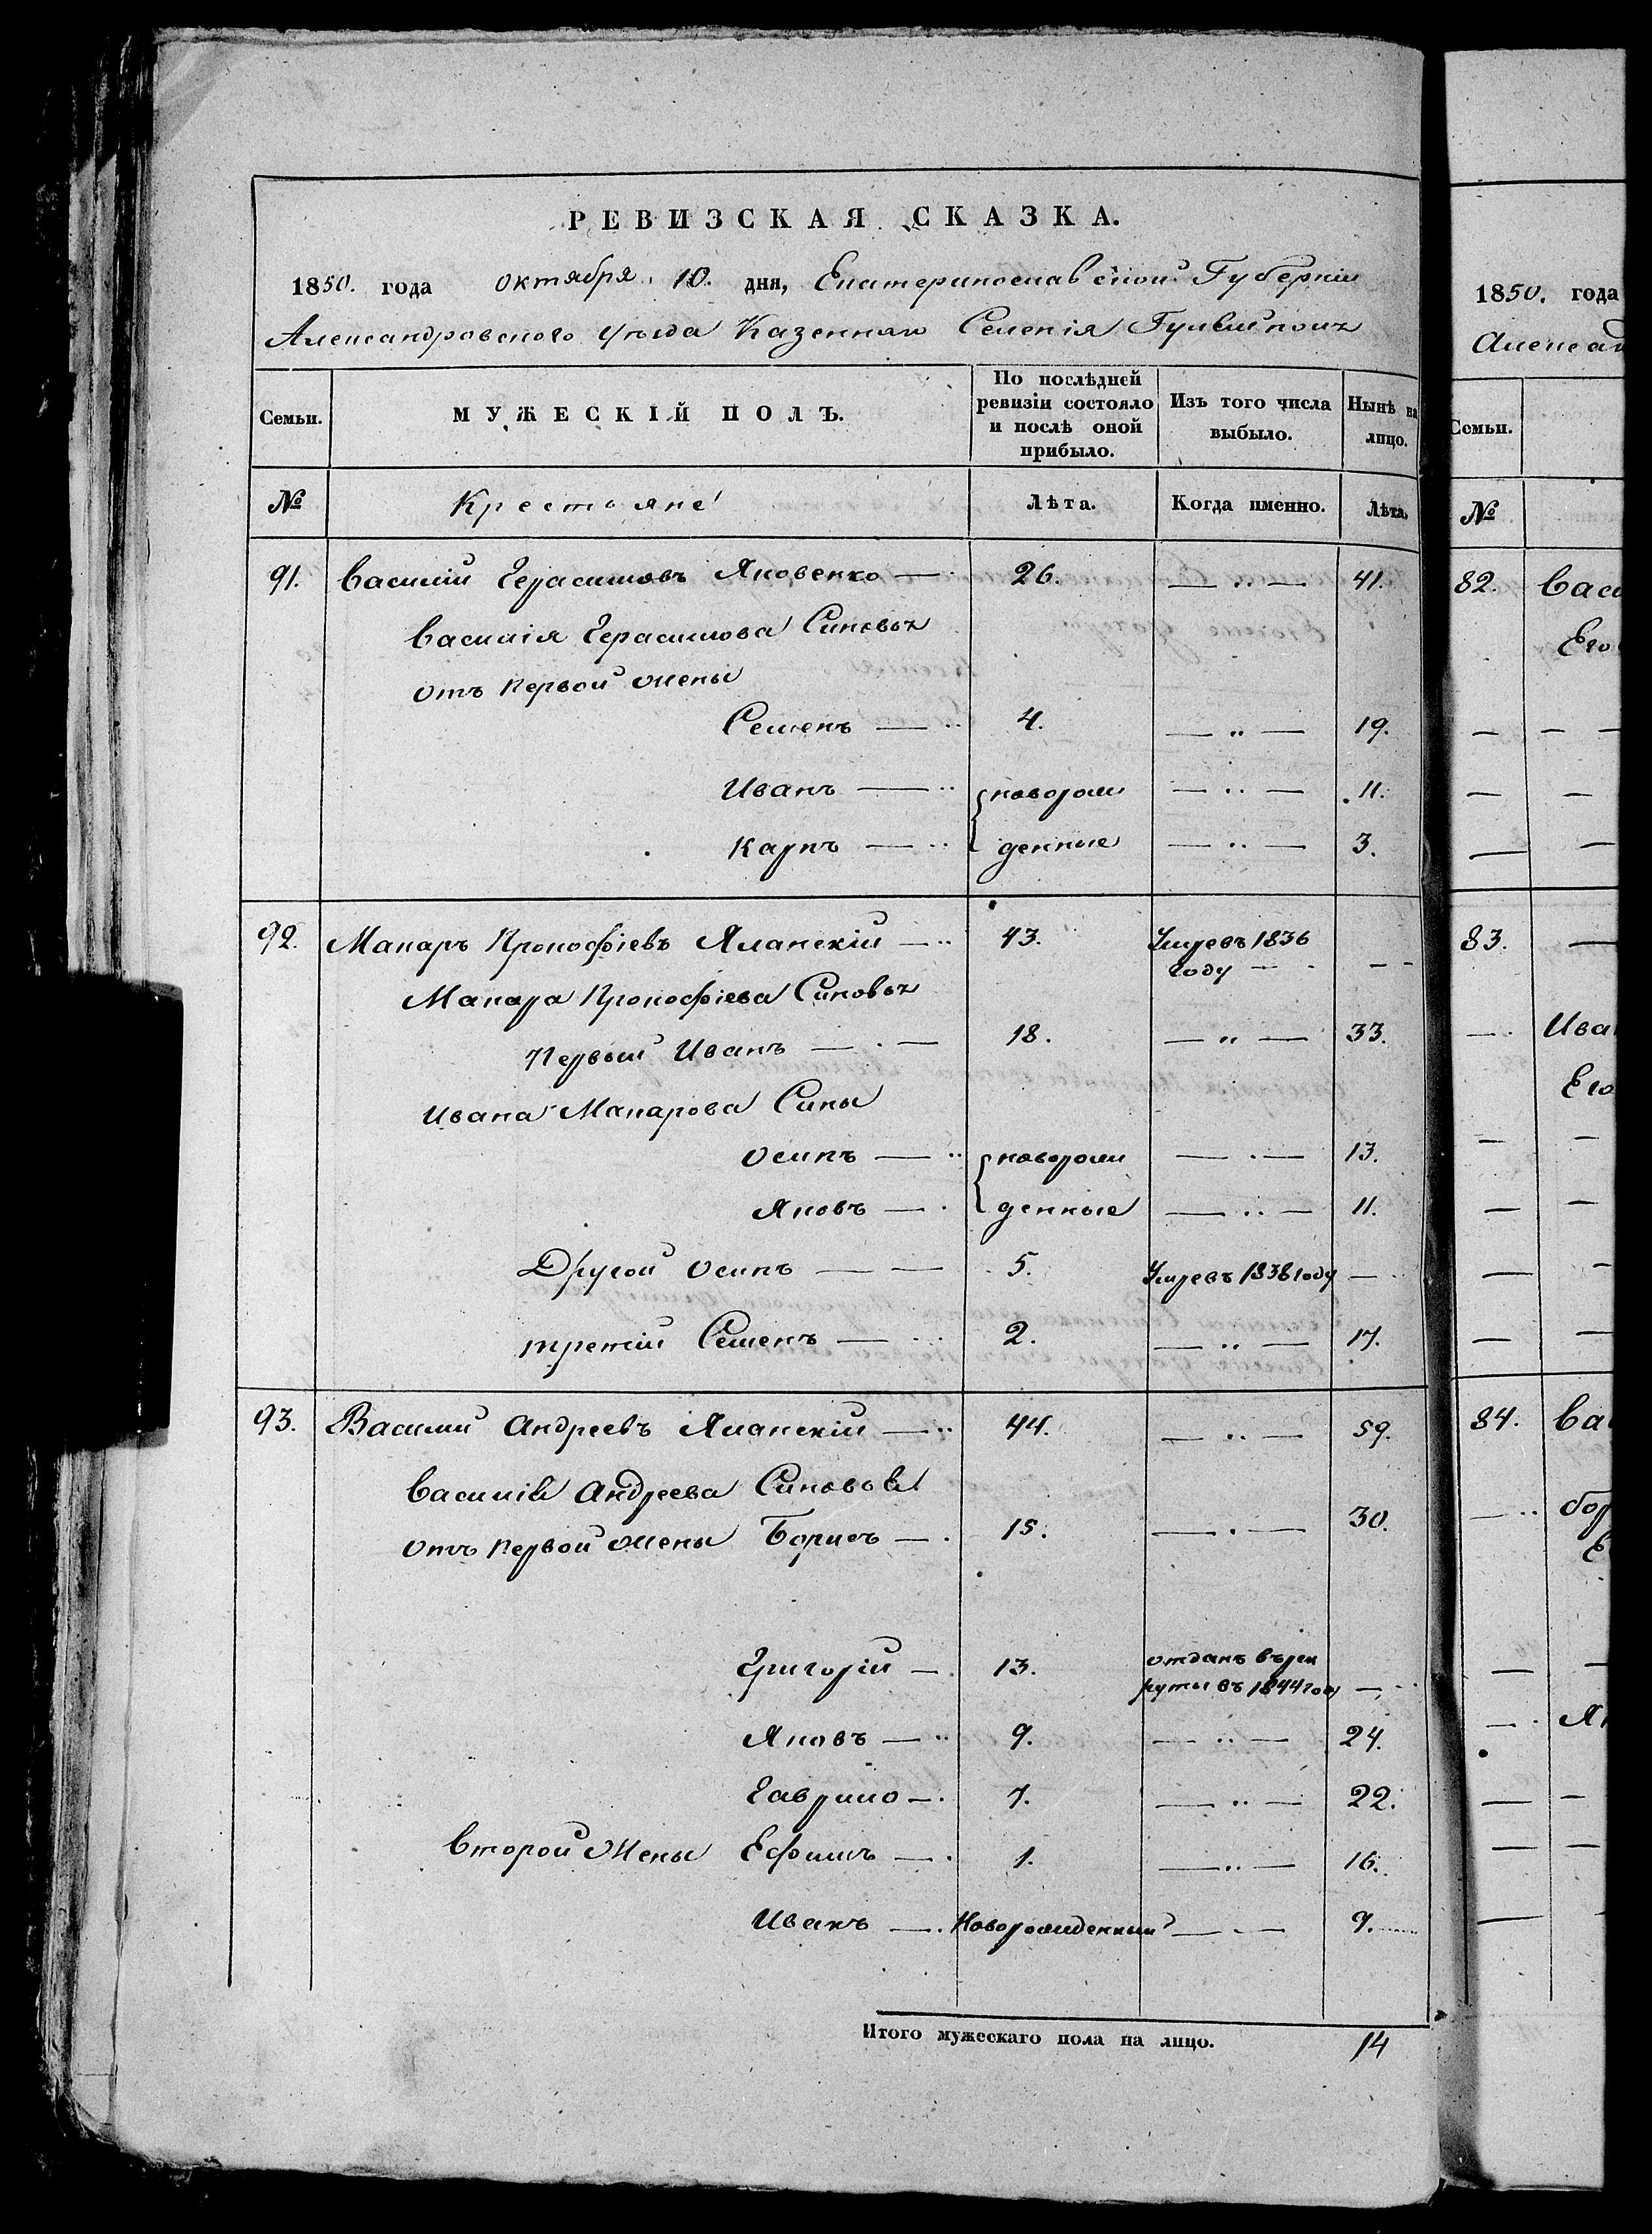 РЕВИЗСКАЯ СКАЗКА.
1850. года октября 10. дня, Екатеринославской Губерніи
Александровского уѣзда Казенного Селенія Гуляйполя
Семьи. МУЖЕСКІЙ ПОЛЪ. По послѣдней ревизіи состояло и послѣ оной прибыло. Изъ того числа выбыло. Нынѣ на лицо.
№ Крестьяне Лѣта. Когда именно. Лѣта.
91. Василій Герасимовъ Яковенко — 26. — „ — 41.
Василія Герасимова Синовья
отъ первой жены
Семенъ — 4. — „ — 19.
Иванъ — новорож — „ — 11.
Карпъ — денные — „ — 3.
92. Макаръ Прокофіевъ Яланскій — 43. Умревъ 1836
году — —
Макара Прокофіева Синовья
Первый Иванъ — 18. — „ — 33.
Ивана Макарова Сины
Осипъ — новорож — 13.
Яковъ — денные — „ — 11.
Другой Осипъ — — 5. Умревъ 1838 году —
третій Семенъ — 2. — „ — 17.
93. Василий Андреевъ Яланскій — 44. — „ — 59.
Василія Андреева Синовья
отъ первой жены Борисъ — 15. — 30.
Григорій — 13. отданъ въ рек
руты въ 1844 году —
Яковъ — 9. — „ — 24.
Гаврило — 7. — „ — 22.
Второй Жены Ефимъ — 1. — „ — 16.
Иванъ — Новорожденный — 9.
Итого мужескаго пола на лицо. 14
1850. года
Семьи.
№
82.
Его
83.
84.